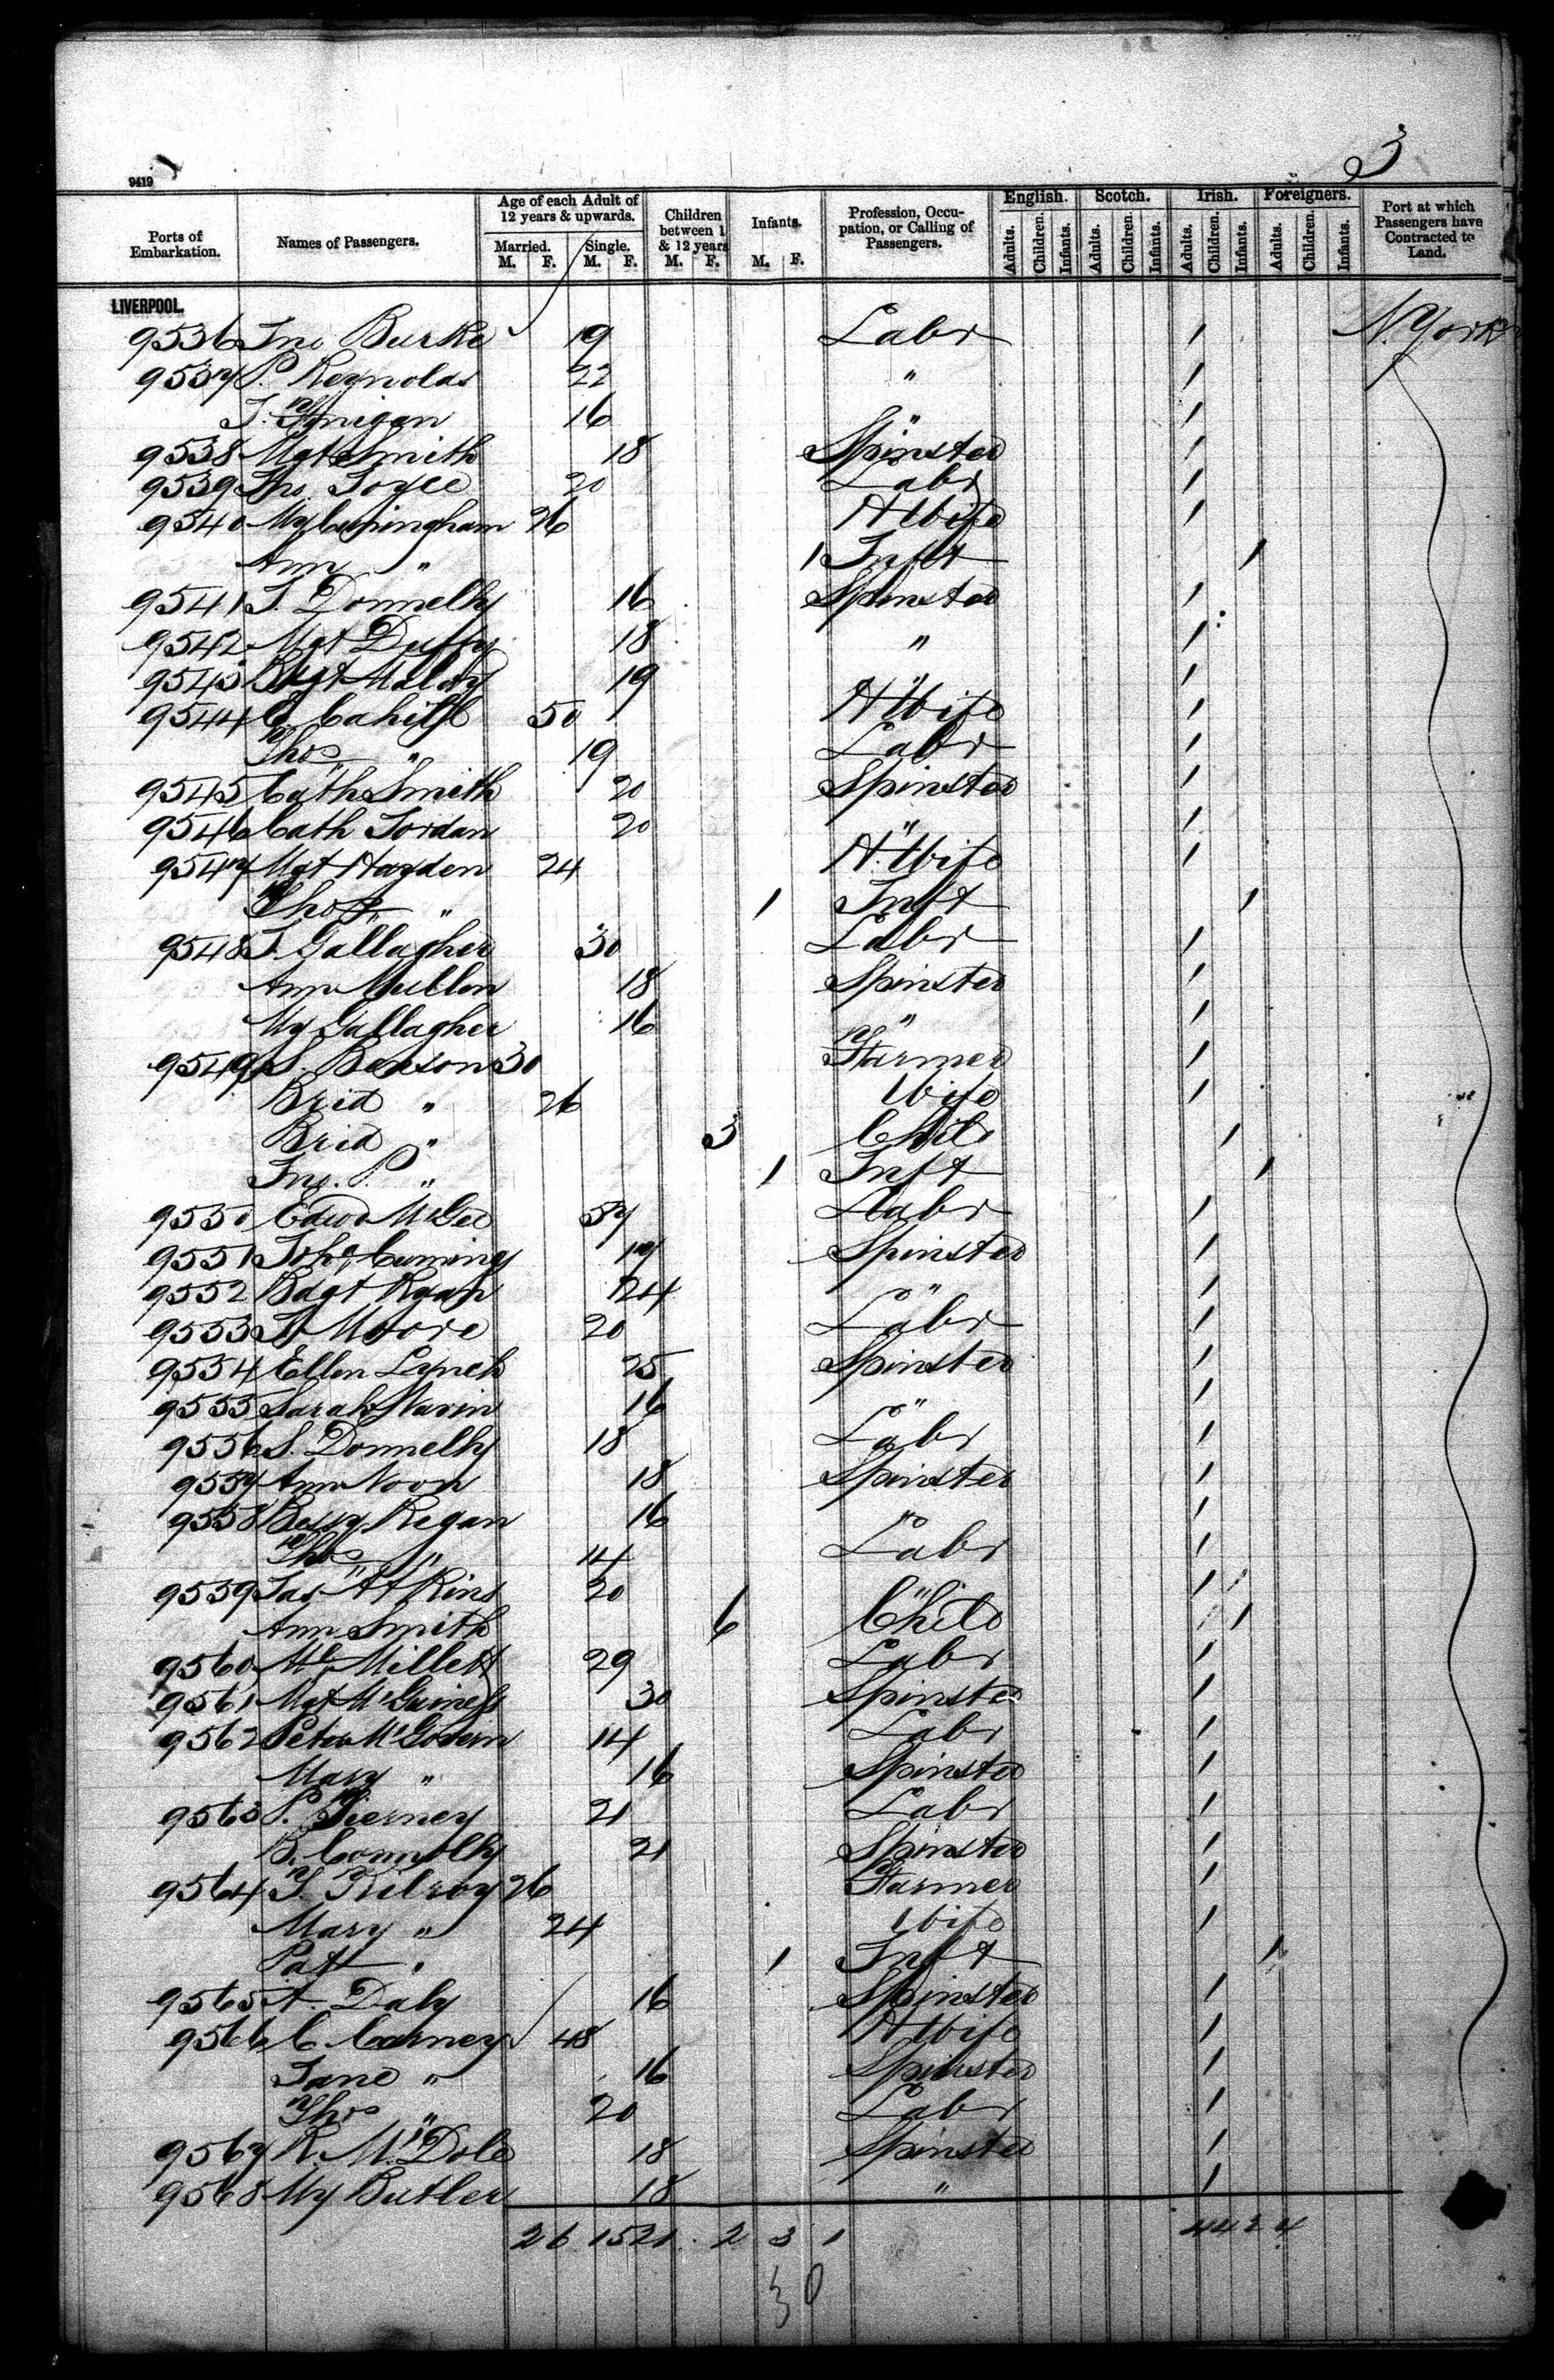 3
9419
Ports of Embarkation. Names of Passengers. Age of each Adult of 12 years & upwards. Married. M. F. Single. M. F. Children between 1 & 12 years M. F. Infants. M. F. Profession, Occupation, or Calling of Passengers. English. Adults. Children. Infants. Scotch. Adults. Children. Infants. Irish. Adults. Children. Infants. Foreigners. Adults. Children. Infants. Port at which Passengers have Contracted to Land.
LIVERPOOL.
9536 Jno Burke 19 Labr / N. York
9537 P. Reynolds 22 " /
T. Finigan 16 " /
9538 Mgt Smith 18 Spinster /
9539 Jno. Joyce 20 Labr /
9540 My Cuningham 26 H Wife /
Ann " 1 Inft /
9541 J. Donnelly 16 Spinster /
9542 Mgt Duffy 18 " /
9543 Bdgt Maloy 19 " /
9544 C. Cahill 50 H Wife /
Thos " 19 Labr /
9545 Cath Smith 20 Spinster /
9546 Cath Jordan 20 " /
9547 Mgt Hayden 24 H. Wife /
Thos " 1 Inft /
9548 J. Gallagher 30 Labr /
Ann Mullen 18 Spinster /
My Gallagher 16 " /
9549 S. Benson 30 Farmer /
Brid " 26 Wife /
Brid " 3 Child /
Jno. P. " 1 Inft /
9550 Edwd McGee 57 Labr /
9551 Joha Cuming 17 Spinster /
9552 Bdgt Ryan 24 " /
9553 J. Moore 20 Labr /
9554 Ellen Lynch 25 Spinster /
9555 Sarah Navin 16 " /
9556 S. Donnelly 18 Labr /
9557 Ann Noon 18 Spinster /
9558 Bessy Regan 16 " /
Thos " 14 Labr /
9559 Jas Atkins 20 " /
Ann Smith 6 Child /
9560 Ml Millett 29 Labr /
9561 Mgt McGuiness 30 Spinster /
9562 Peter McGovern 14 Labr /
Mary " 16 Spinster /
9563 P. Tierney 21 Labr /
B. Connolly 21 Spinster /
9564 T. Kilroy 26 Farmer /
Mary " 24 Wife /
Patt " 1 Inft /
9565 A. Daly 16 Spinster /
9566 C. Carney 48 H Wife /
Jane " 16 Spinster /
Thos " 20 Labr /
9567 R. McDole 18 Spinster /
9568 My Butler 18 " /
2 6 15 21 . 2 3 1 44 2 4
30